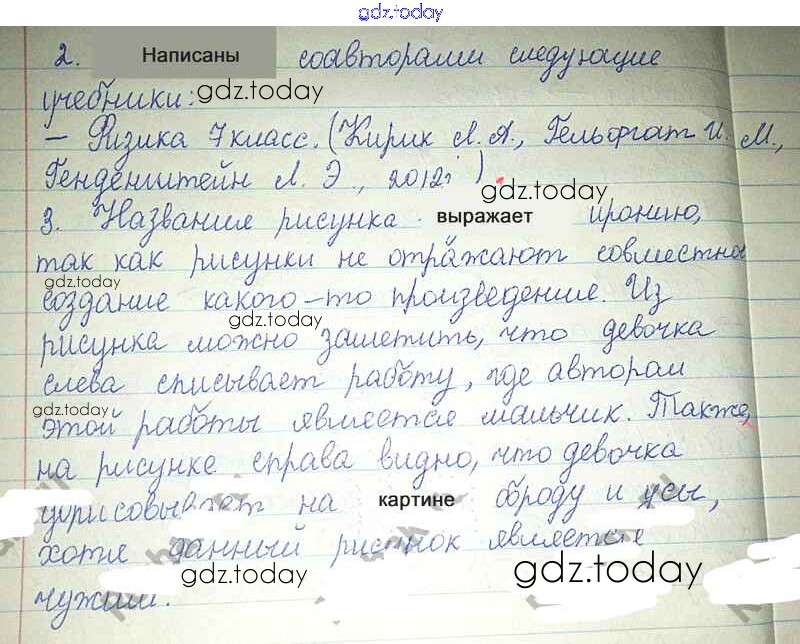 gdz.today
2. Написаны соавторами следующие
учебники: gdz.today
– Физика 7 класс. (Кирик Л. А., Гельфгат И. М.,
Генденштейн Л. Э., 2012г)
gdz.today
3. Название рисунка выражает иронию,
так как рисунки не отражают совместно
gdz.today
создание какого-то произведение. Из
gdz.today
рисунка можно заметить, что девочка
слева списывает работу, где автором
gdz.today
этой работы является мальчик. Также,
на рисунке справа видно, что девочка
gdz.today
дорисовывает на картине бороду и усы,
хотя данный рисунок является
gdz.today gdz.today
чужим.